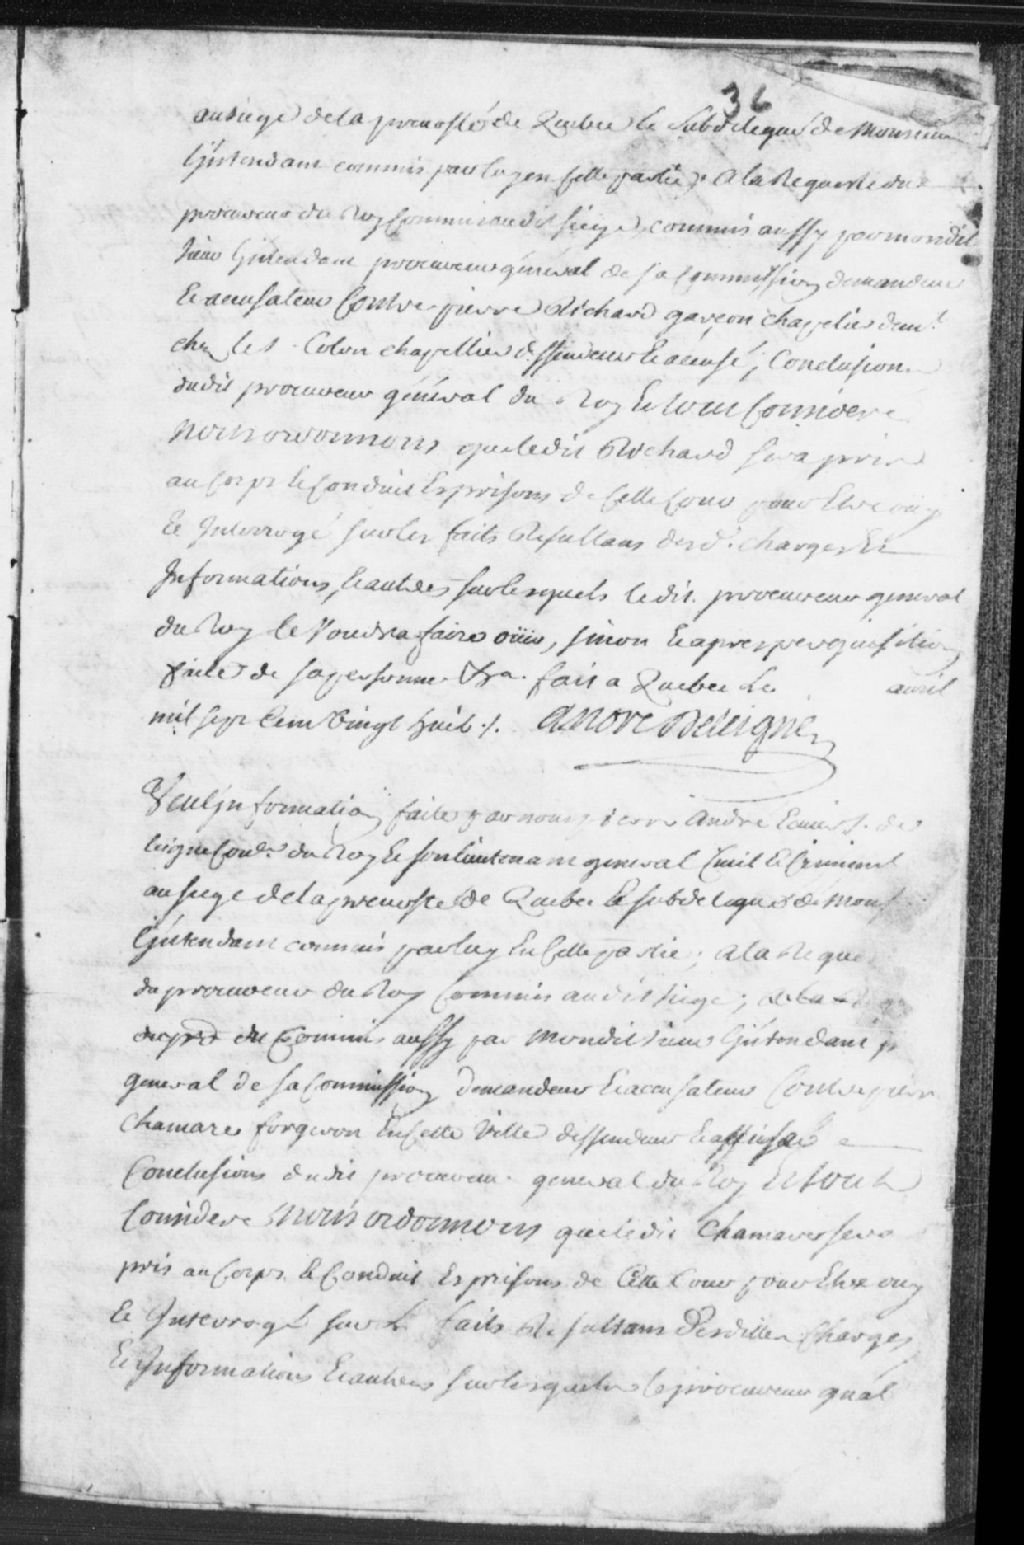 36
au siege de la prevosté de Quebec le subdelegué de Monsieur
l'Intendant commis par luy en cette partie, a la Requeste du
procureur du Roy Commis audit siege, commis aussy par mondit
sieur Intendant procureur général de sa Commission demandeur
Et accusateur Contre pierre Richard garçon chapelier demt.
chez le s. Colon chapellier deffendeur Et accusé; Conclusions
dudit procureur général du Roy Et tout Consideré
Nous ordonnons que ledit Richard sera pris
au Corps Et Conduit Es prisons de Cette Cour pour Etre ouy
Et Interrogé sur les faits Resultans desd. charges Et
Informations, Et autres sur lesquels ledit procureur general
du Roy le Voudra faire oüir, sinon Et apres perquisition
faite de sa personne &ra. fait a Quebec Le avril
mil sept Cent Vingt huit ./. Andre De Leigne
Veu l'Information faite par nous pierre André Ecuier s. de
leigne Coner. du Roy Et son lieutenant general Civil Et Criminel
au siege de la prevosté de Quebec Et subdelegué de Mons
l'Intendant commis par luy En Cette partie; a la Reque
du procureur du Roy Commis audit siege;
Commis aussy par Mondit sieur l'Intendant pr
general de sa Commission demandeur Et accusateur Contre pierre
Chamare forgeron En Cette Ville deffendeur Et accusé
Conclusions dudit procureur general du Roy Et tout
Consideré Nous ordonnons que ledit Chamare sera
pris au Corps Et Conduit Es prisons de Cette Cour pour Etre ouy
Et Interrogé sur les faits Resultans Desdittes Charges
Et Informations Et autres sur lesquels le procureur gnãl